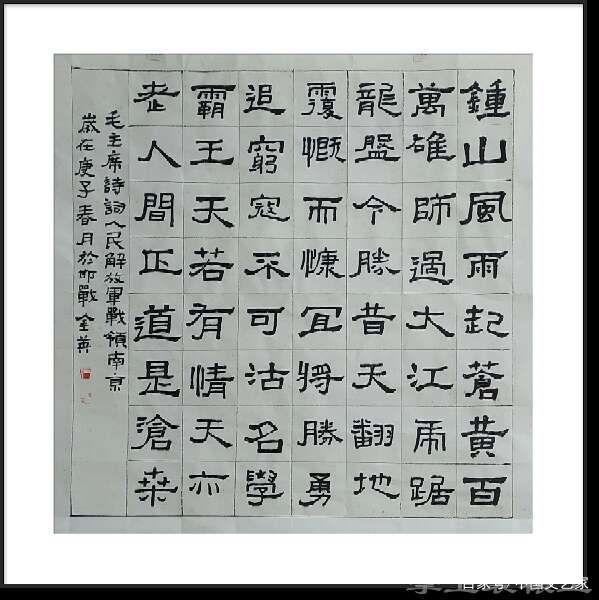 鍾山風雨起蒼黃百
萬雄師過大江虎踞
龍盤今勝昔天翻地
覆慨而慷宜將勝勇
追窮寇不可沽名學
霸王天若有情天亦
老人間正道是滄桑
毛主席詩詞人民解放軍戰領南京
歲在庚子春月於邯鄲全英
百家号/中国文艺家